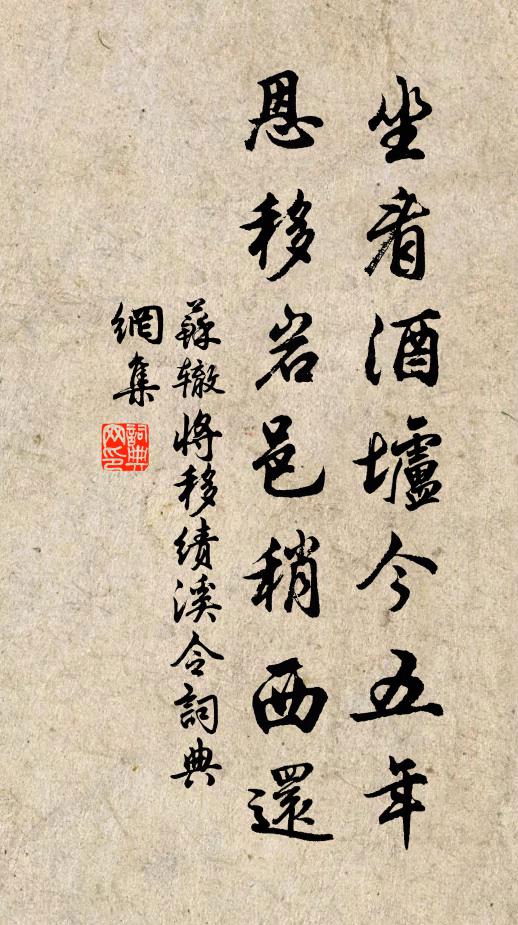 坐看酒壚今五年
恩移岩邑稍西還
蘇辙將移績溪令詞典
網集
詞典
网印